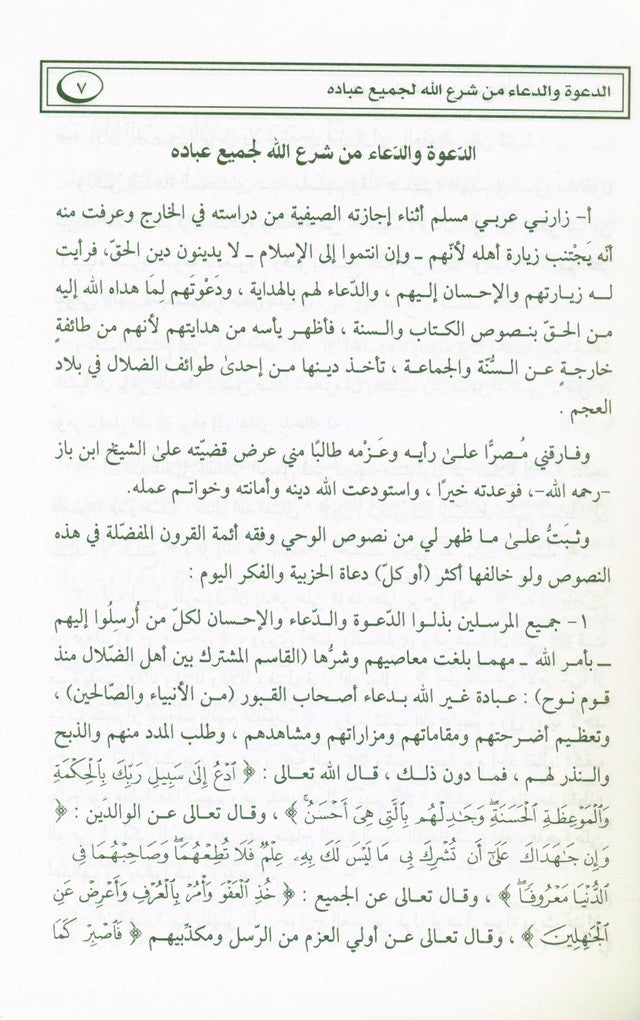 الدعوة والدعاء من شرع الله لجميع عباده
٧
الدّعوة والدّعاء من شرع الله لجميع عباده
أ- زارني عربي مسلم أثناء إجازته الصيفية من دراسته في الخارج وعرفت منه
أنّه يَجْتنب زيارة أهله لأنّهم ـ وإن انتموا إلى الإسلام ـ لا يدينون دين الحقّ، فرأيت
لـه زيـارتهم والإحـسان إلـيهم ، والدّعاء لهم بالهداية ، ودَعْوتَهم لما هداه الله إليه
مـن الحـقّ بنـصوص الكتـاب والسنة ، فأظهـر يأسه من هدايتهم لأنهم من طائفةٍ
خارجـةٍ عـن الـسُّنّة والجماعة ، تأخـذ دينهـا مـن إحـدىٰ طوائف الضلال في بلاد
العجم .
وفـارقني مُـصرًّا علـىٰ رأيـه وعَـزْمه طالبًا مني عرض قضيّته علىٰ الشيخ ابن باز
-رحمه الله-، فوعدته خيرًا ، واستودعت الله دينه وأمانته وخواتـم عمله.
وثـبَتُّ علـىٰ مـا ظهر لي من نصوص الوحي وفقه أئمة القرون المفضّلة في هذه
النصوص ولو خالفها أكثر (أو كلّ) دعاة الحزبية والفكر اليوم :
١- جمـيع المرسـلين بـذلـوا الدّعـوة والـدّعاء والإحسان لكلّ من أُرسلُوا إليهم
ــ بأمـر الله ـ مهمـا بلغت معاصيهم وشرُّها (القاسم المشترك بين أهل الضّلال منذ
قـوم نـوح) : عـبادة غـير الله بـدعاء أصـحاب القبور (مـن الأنبياء والصّالحين) ،
وتعظيـم أضـرحتهم ومقاماتهم ومزاراتهم ومشاهدهم ، وطلب المدد منهم والذبح
والـنّذر لهـم ، فمـا دون ذلـك ، قـال الله تعـالى : ﴿ ٱدْعُ إِلَىٰ سَبِيلِ رَبِّكَ بِٱلْحِكْمَةِ
وَٱلْمَوْعِظَةِ ٱلْحَسَنَةِ ۖ وَجَـٰدِلْهُم بِٱلَّتِى هِىَ أَحْسَنُ ۚ ﴾ ، وقـال تعالى عن الوالدَين : ﴿
وَإِن جَـٰهَدَاكَ عَلَىٰٓ أَن تُشْرِكَ بِى مَا لَيْسَ لَكَ بِهِۦ عِلْمٌ فَلَا تُطِعْهُمَا ۖ وَصَاحِبْهُمَا فِى
ٱلدُّنْيَا مَعْرُوفًا ۖ ﴾ ، وقـال تعالى عن الجميع : ﴿ خُذِ ٱلْعَفْوَ وَأْمُرْ بِٱلْعُرْفِ وَأَعْرِضْ عَنِ
ٱلْجَـٰهِلِينَ ﴾ ، وقـال تعالـى عـن أولي العزم من الرّسل ومكذّبيهم ﴿ فَٱصْبِرْ كَمَا